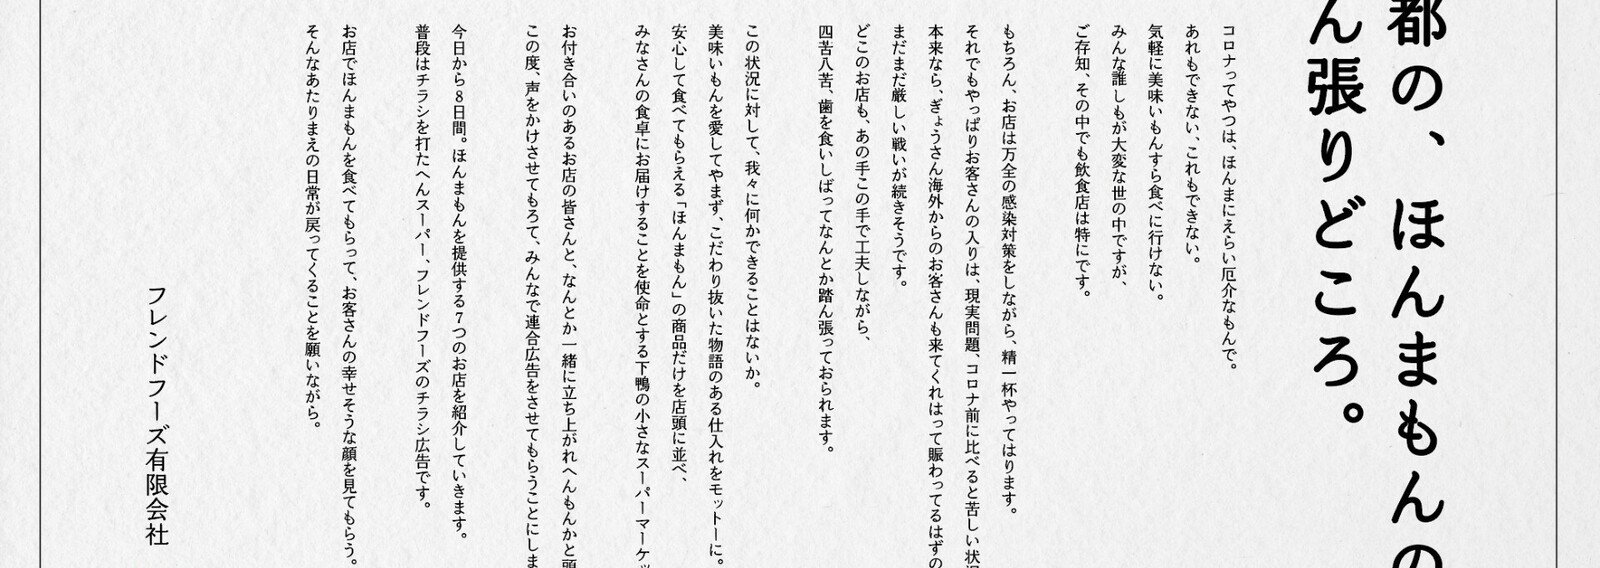 都の、ほんまもんの
ん張りどころ。
コロナってやつは、ほんまにえらい厄介なもんで。
あれもできない、これもできない。
気軽に美味いもんすら食べに行けない。
みんな誰しもが大変な世の中ですが、
ご存知、その中でも飲食店は特にです。
もちろん、お店は万全の感染対策をしながら、精一杯やってはります。
それでもやっぱりお客さんの入りは、現実問題、コロナ前に比べると苦しい状況
本来なら、ぎょうさん海外からのお客さんも来てくれはって賑わってるはずの
まだまだ厳しい戦いが続きそうです。
どこのお店も、あの手この手で工夫しながら、
四苦八苦、歯を食いしばってなんとか踏ん張っておられます。
この状況に対して、我々に何かできることはないか。
美味いもんを愛してやまず、こだわり抜いた物語のある仕入れをモットーに。
安心して食べてもらえる「ほんまもん」の商品だけを店頭に並べ、
みなさんの食卓にお届けすることを使命とする下鴨の小さなスーパーマーケッ
お付き合いのあるお店の皆さんと、なんとか一緒に立ち上がれへんもんかと頭
この度、声をかけさせてもろて、みんなで連合広告をさせてもらうことにしま
今日から8日間。ほんまもんを提供する7つのお店を紹介していきます。
普段はチラシを打たへんスーパー、フレンドフーズのチラシ広告です。
お店でほんまもんを食べてもらって、お客さんの幸せそうな顔を見てもらう。
そんなあたりまえの日常が戻ってくることを願いながら。
フレンドフーズ有限会社